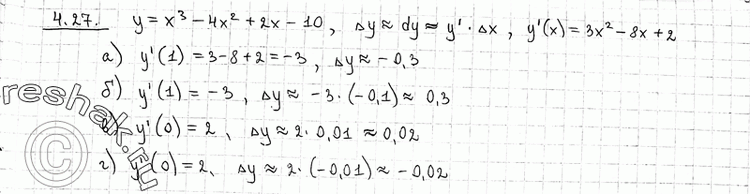 4.27. y = x³ - 4x² + 2x - 10, Δy ≈ dy ≈ y' · Δx, y'(x) = 3x² - 8x + 2
а) y'(1) = 3 - 8 + 2 = -3, Δy ≈ -0,3
б) y'(1) = -3, Δy ≈ -3 · (-0,1) ≈ 0,3
в) y'(0) = 2, Δy ≈ 2 · 0,01 ≈ 0,02
г) y'(0) = 2, Δy ≈ 2 · (-0,01) ≈ -0,02
reshak.ru
©